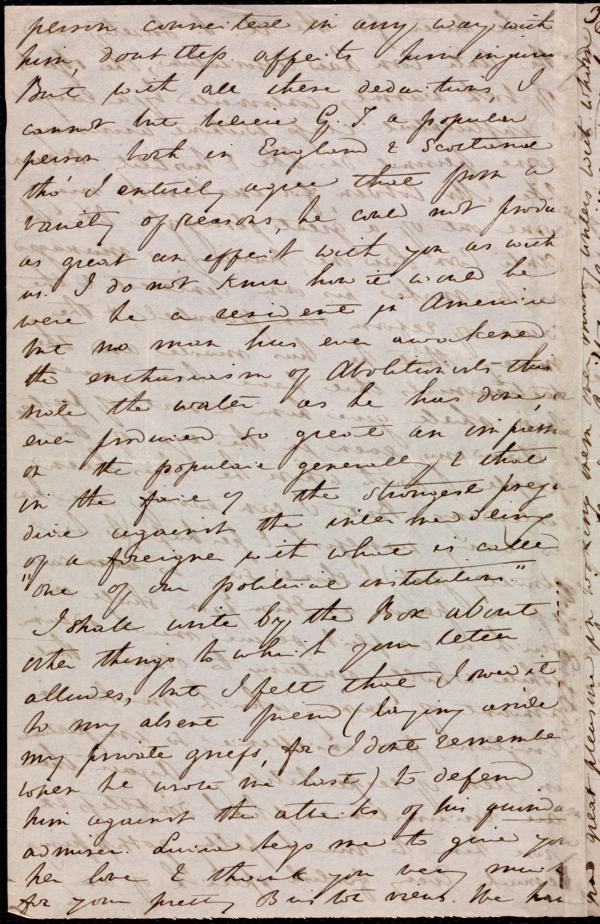 person connected in any way with
him, doubtless affects him injuri
But with all these deductions, I
cannot but believe G. T. a popular
person both in England & Scotland
tho' I entirely agree that from a
variety of reasons, he could not produ
as great an effect with you as with
us. I do not know how it would be
were he a resident in America
but no man has ever awakened
the enthusiasm of Abolitionists this
side the water as he has done, or
ever produced so great an impress
on the populace generally & that
in the face of the strongest preju
dice against the intermeddling
of a foreigner with what is called
"one of our political institutions."
I shall write by the Box about
other things to which your letter
alludes, but I felt that I owed it
to my absent friend (laying aside
my private griefs, for I dont remember
when he wrote me last) to defend
him against the attacks of his quond
admirer. Louisa begs me to give you
her love & thank you very much
for your pretty Bristol views. We have
great pleasure in working them over many under with whom